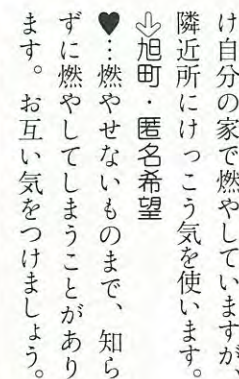 け自分の家で燃やしていますが、
隣近所にけっこう気を使います。
⇩旭町・匿名希望
♥…燃やせないものまで、知ら
ずに燃やしてしまうことがあり
ます。お互い気をつけましょう。